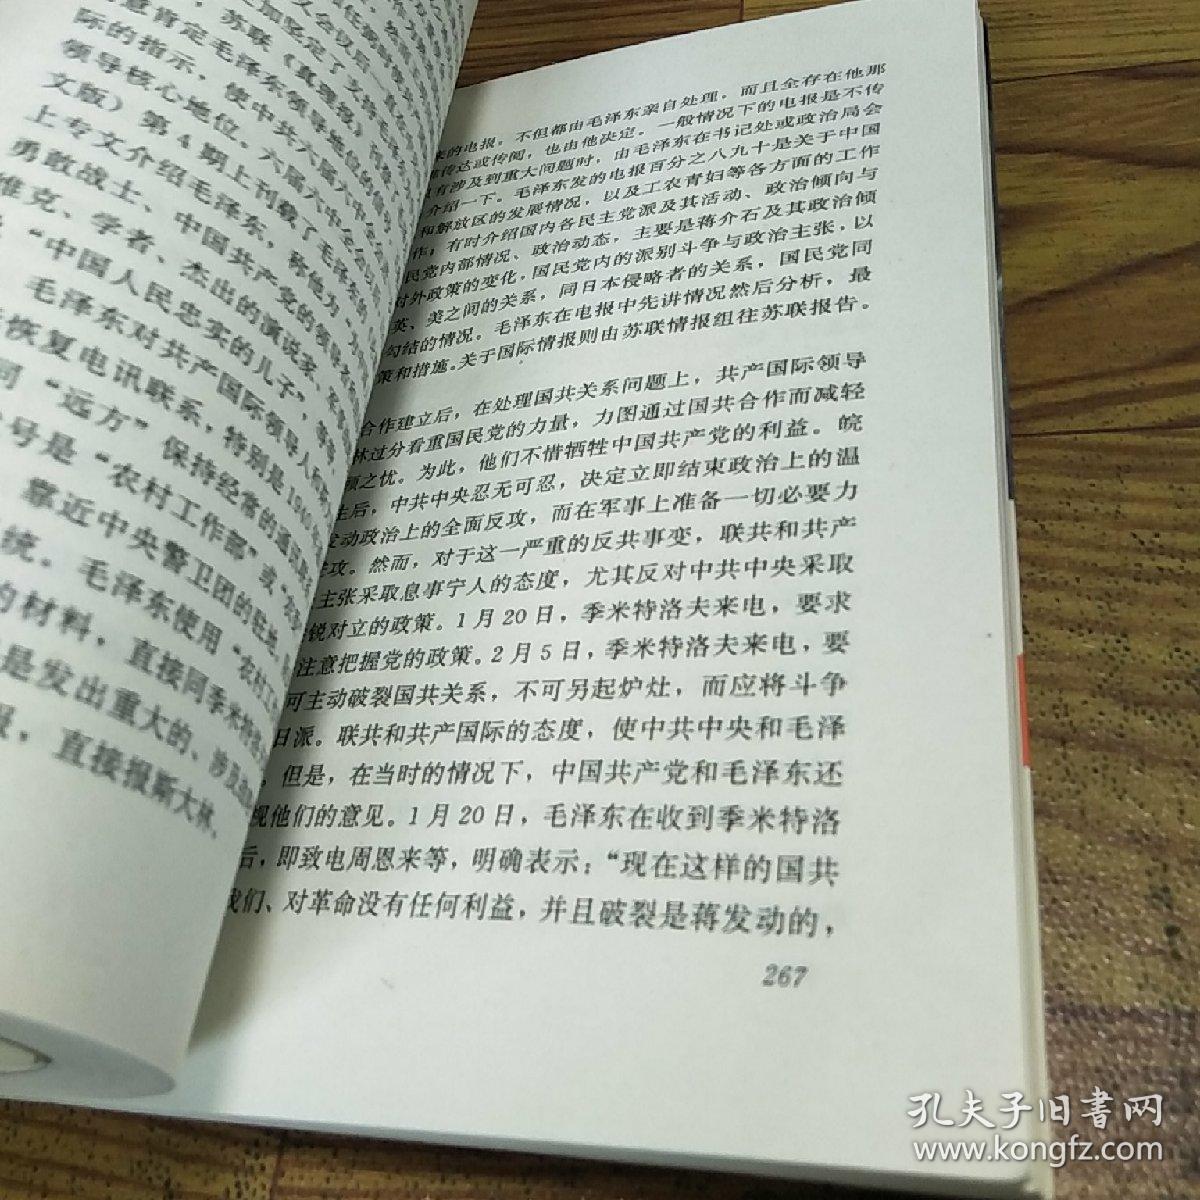 意肯定毛泽东领导
际的指示，使中共六届六中全
领导核心地位。
文版）第4期上刊登了毛泽东的
上专文介绍毛泽东，称他为
勇敢战士、中国共产党的领导者
维克、学者、杰出的演说家、
“中国人民忠实的儿子”，等等。
毛泽东对共产国际领导人
恢复电讯联系，特别是1940
同“远方”保持经常的通讯联
号是“农村工作部”或
靠近中央警卫团的驻地，
统。毛泽东使用“农村工
的材料，直接同季米特洛
是发出重大的、涉及
报，直接报斯大林。
来的电报，不但都由毛泽东亲自处理，而且全存在他那
传达或传阅，也由他决定。一般情况下的电报是不传
有涉及到重大问题时，由毛泽东在书记处或政治局会
介绍一下。毛泽东发的电报百分之八九十是关于中国
和解放区的发展情况，以及工农青妇等各方面的工作
作；有时介绍国内各民主党派及其活动、政治倾向与
民党内部情况、政治动态，主要是蒋介石及其政治倾
对外政策的变化，国民党内的派别斗争与政治主张，以
英、美之间的关系，同日本侵略者的关系，国民党同
勾结的情况。毛泽东在电报中先讲情况然后分析，最
策和措施。关于国际情报则由苏联情报组往苏联报告。
合作建立后，在处理国共关系问题上，共产国际领导
林过分看重国民党的力量，力图通过国共合作而减轻
顾之忧。为此，他们不惜牺牲中国共产党的利益。皖
生后，中共中央忍无可忍，决定立即结束政治上的温
发动政治上的全面反攻，而在军事上准备一切必要力
攻。然而，对于这一严重的反共事变，联共和共产
主张采取息事宁人的态度，尤其反对中共中央采取
锐对立的政策。1月20日，季米特洛夫来电，要求
注意把握党的政策。2月5日，季米特洛夫来电，要
可主动破裂国共关系，不可另起炉灶，而应将斗争
日派。联共和共产国际的态度，使中共中央和毛泽
，但是，在当时的情况下，中国共产党和毛泽东还
视他们的意见。1月20日，毛泽东在收到季米特洛
后，即致电周恩来等，明确表示：“现在这样的国共
我们、对革命没有任何利益，并且破裂是蒋发动的，
267
孔夫子旧书网
www.kongfz.com